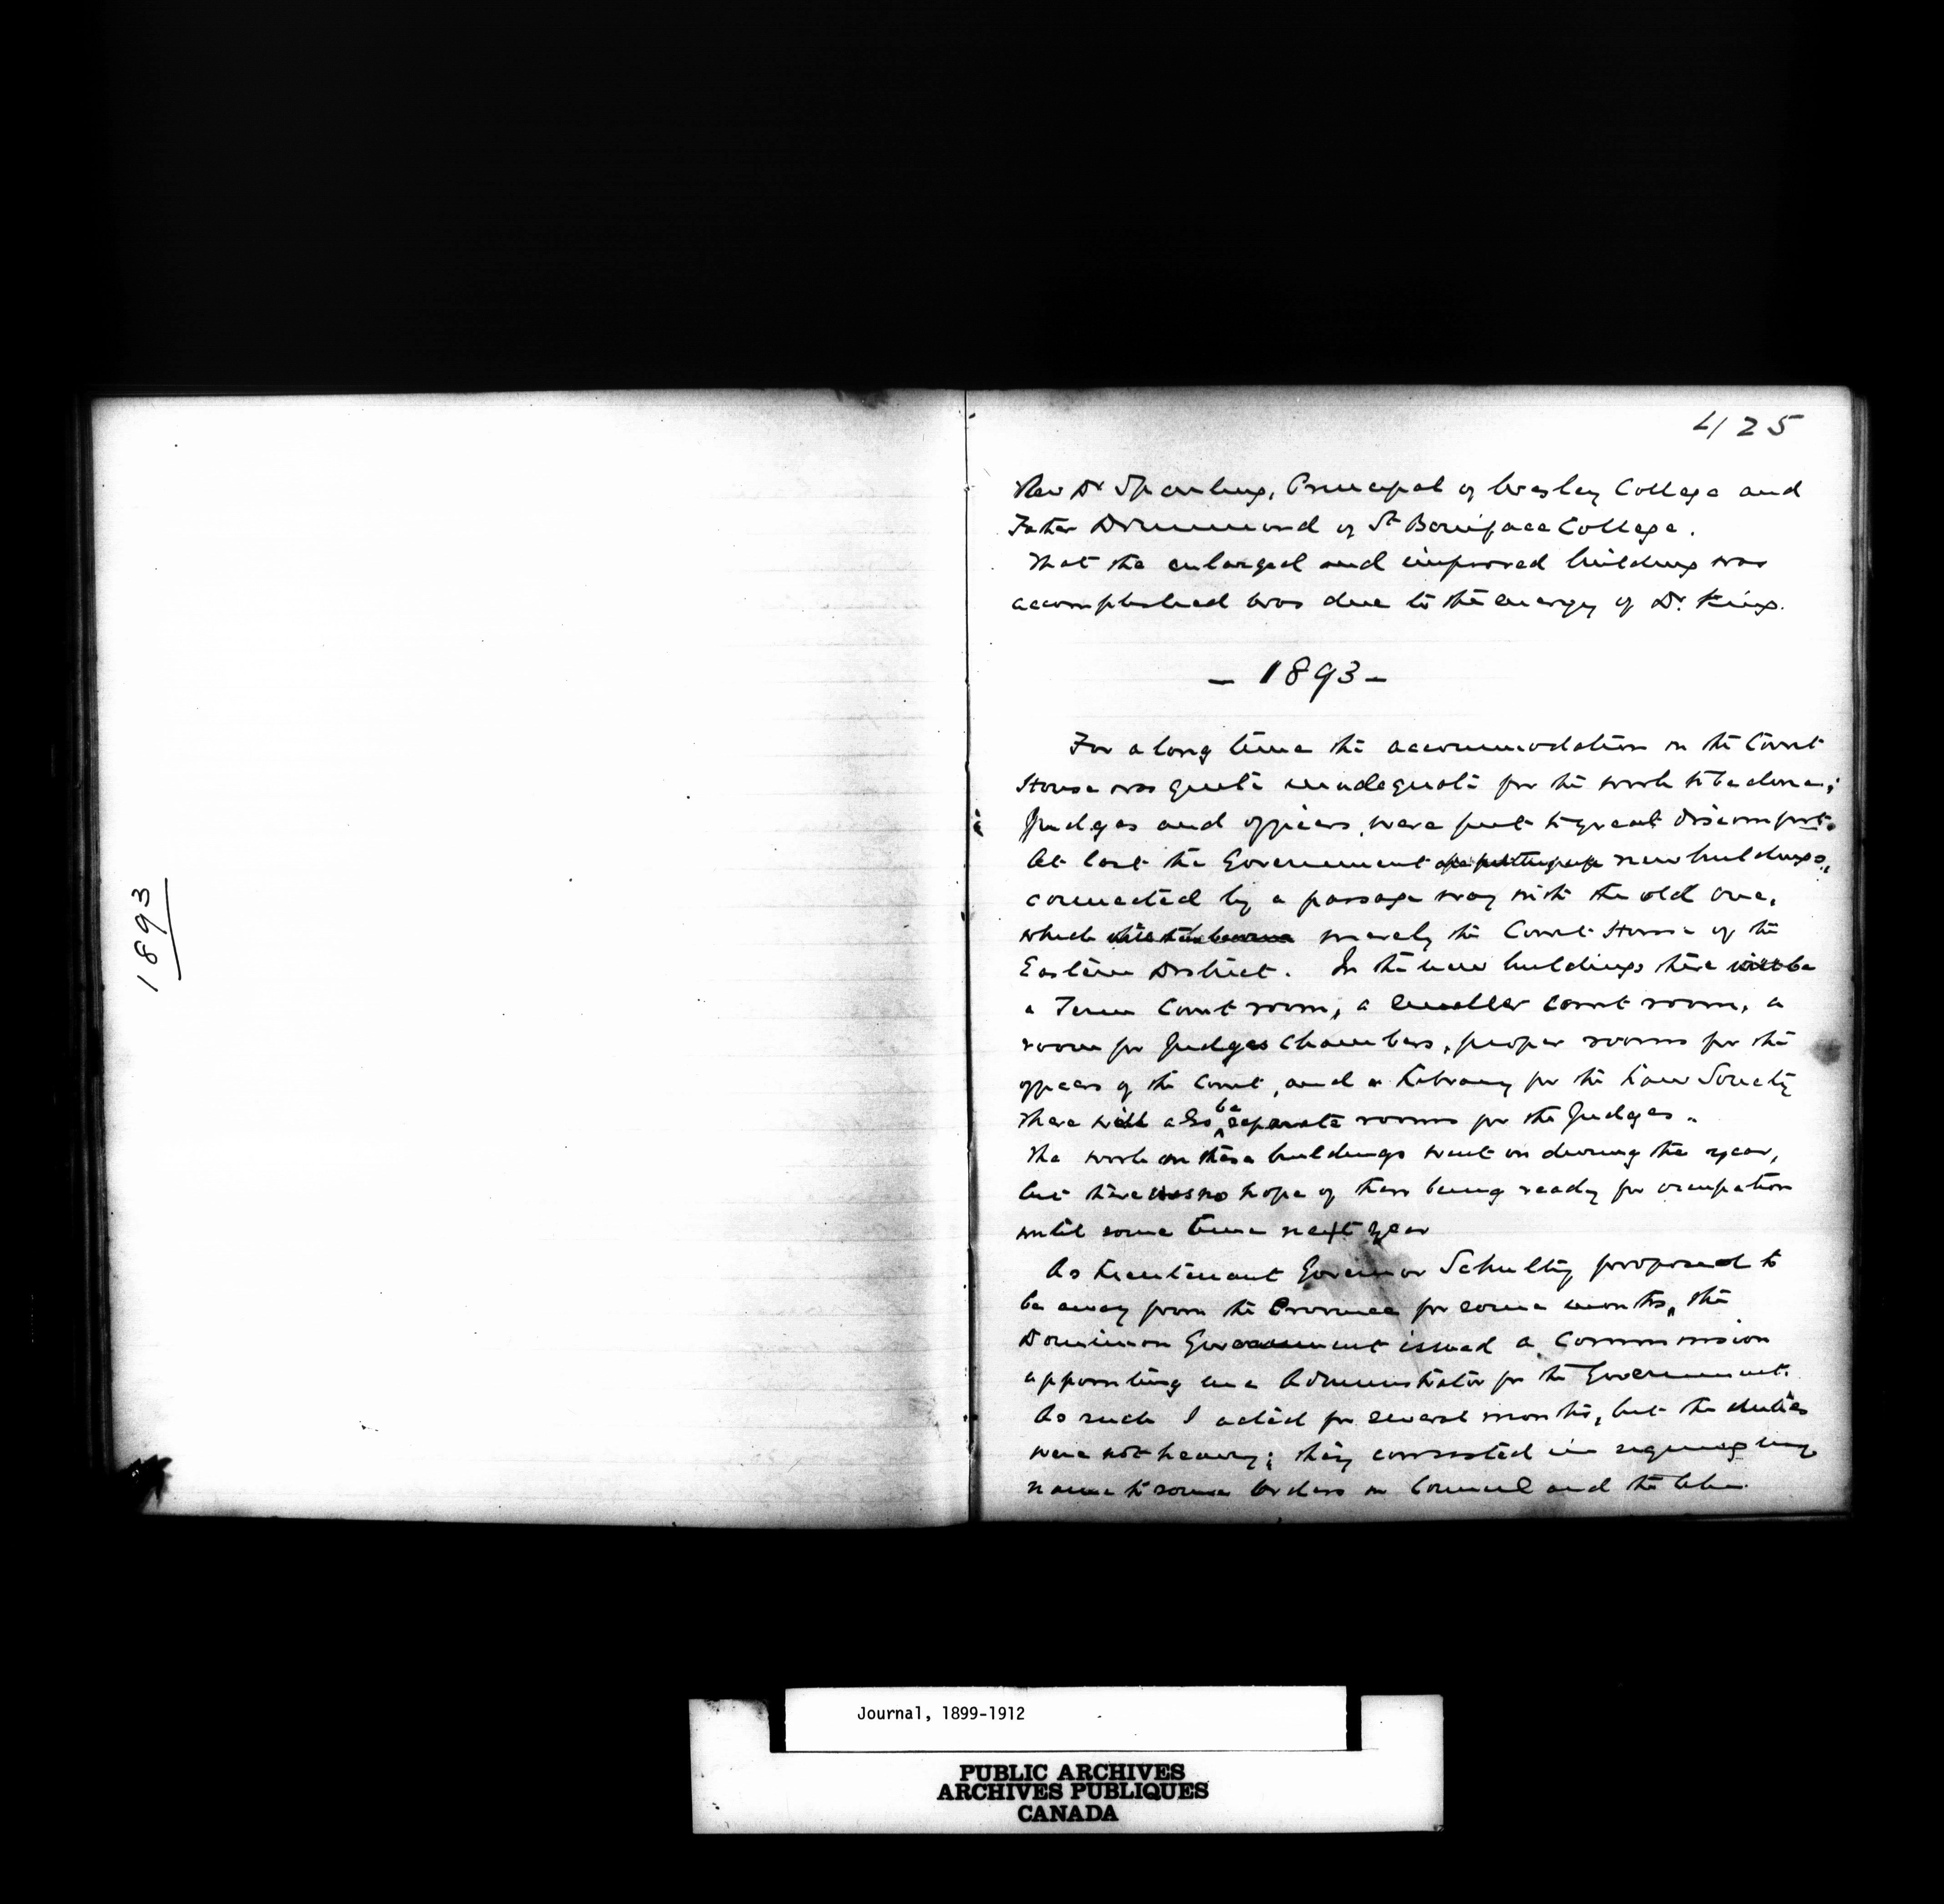 1893
425
Rev Dr Sparling, Principal of Wesley College and
Father Drummond of St Boniface College.
That the enlarged and improved building was
accomplished was due to the energy of Dr King.
- 1893 -
For a long time the accommodation in the Court
House was quite inadequate for the work to be done;
Judges and officers were put to great discomfort.
At last the Government new buildings,
connected by a passage way with the old one,
which merely the Court House of the
Eastern District. In the new buildings there will be
a Term Court room, a smaller court room, a
room for Judges Chambers, proper rooms for the
officers of the Court, and a Library for the Law Society
There will also be separate rooms for the Judges.
The work on these buildings went on during the year,
but there was no hope of their being ready for occupation
until some time next year
As Lieutenant Governor Schultz proposed to
be away from the Province for some months, the
Dominion Government issued a Commission
appointing me Administrator for the Government.
As such I acted for several months, but the duties
were not heavy; they consisted in signing my
name to some Orders in Council and the like.
Journal, 1899-1912
PUBLIC ARCHIVES
ARCHIVES PUBLIQUES
CANADA